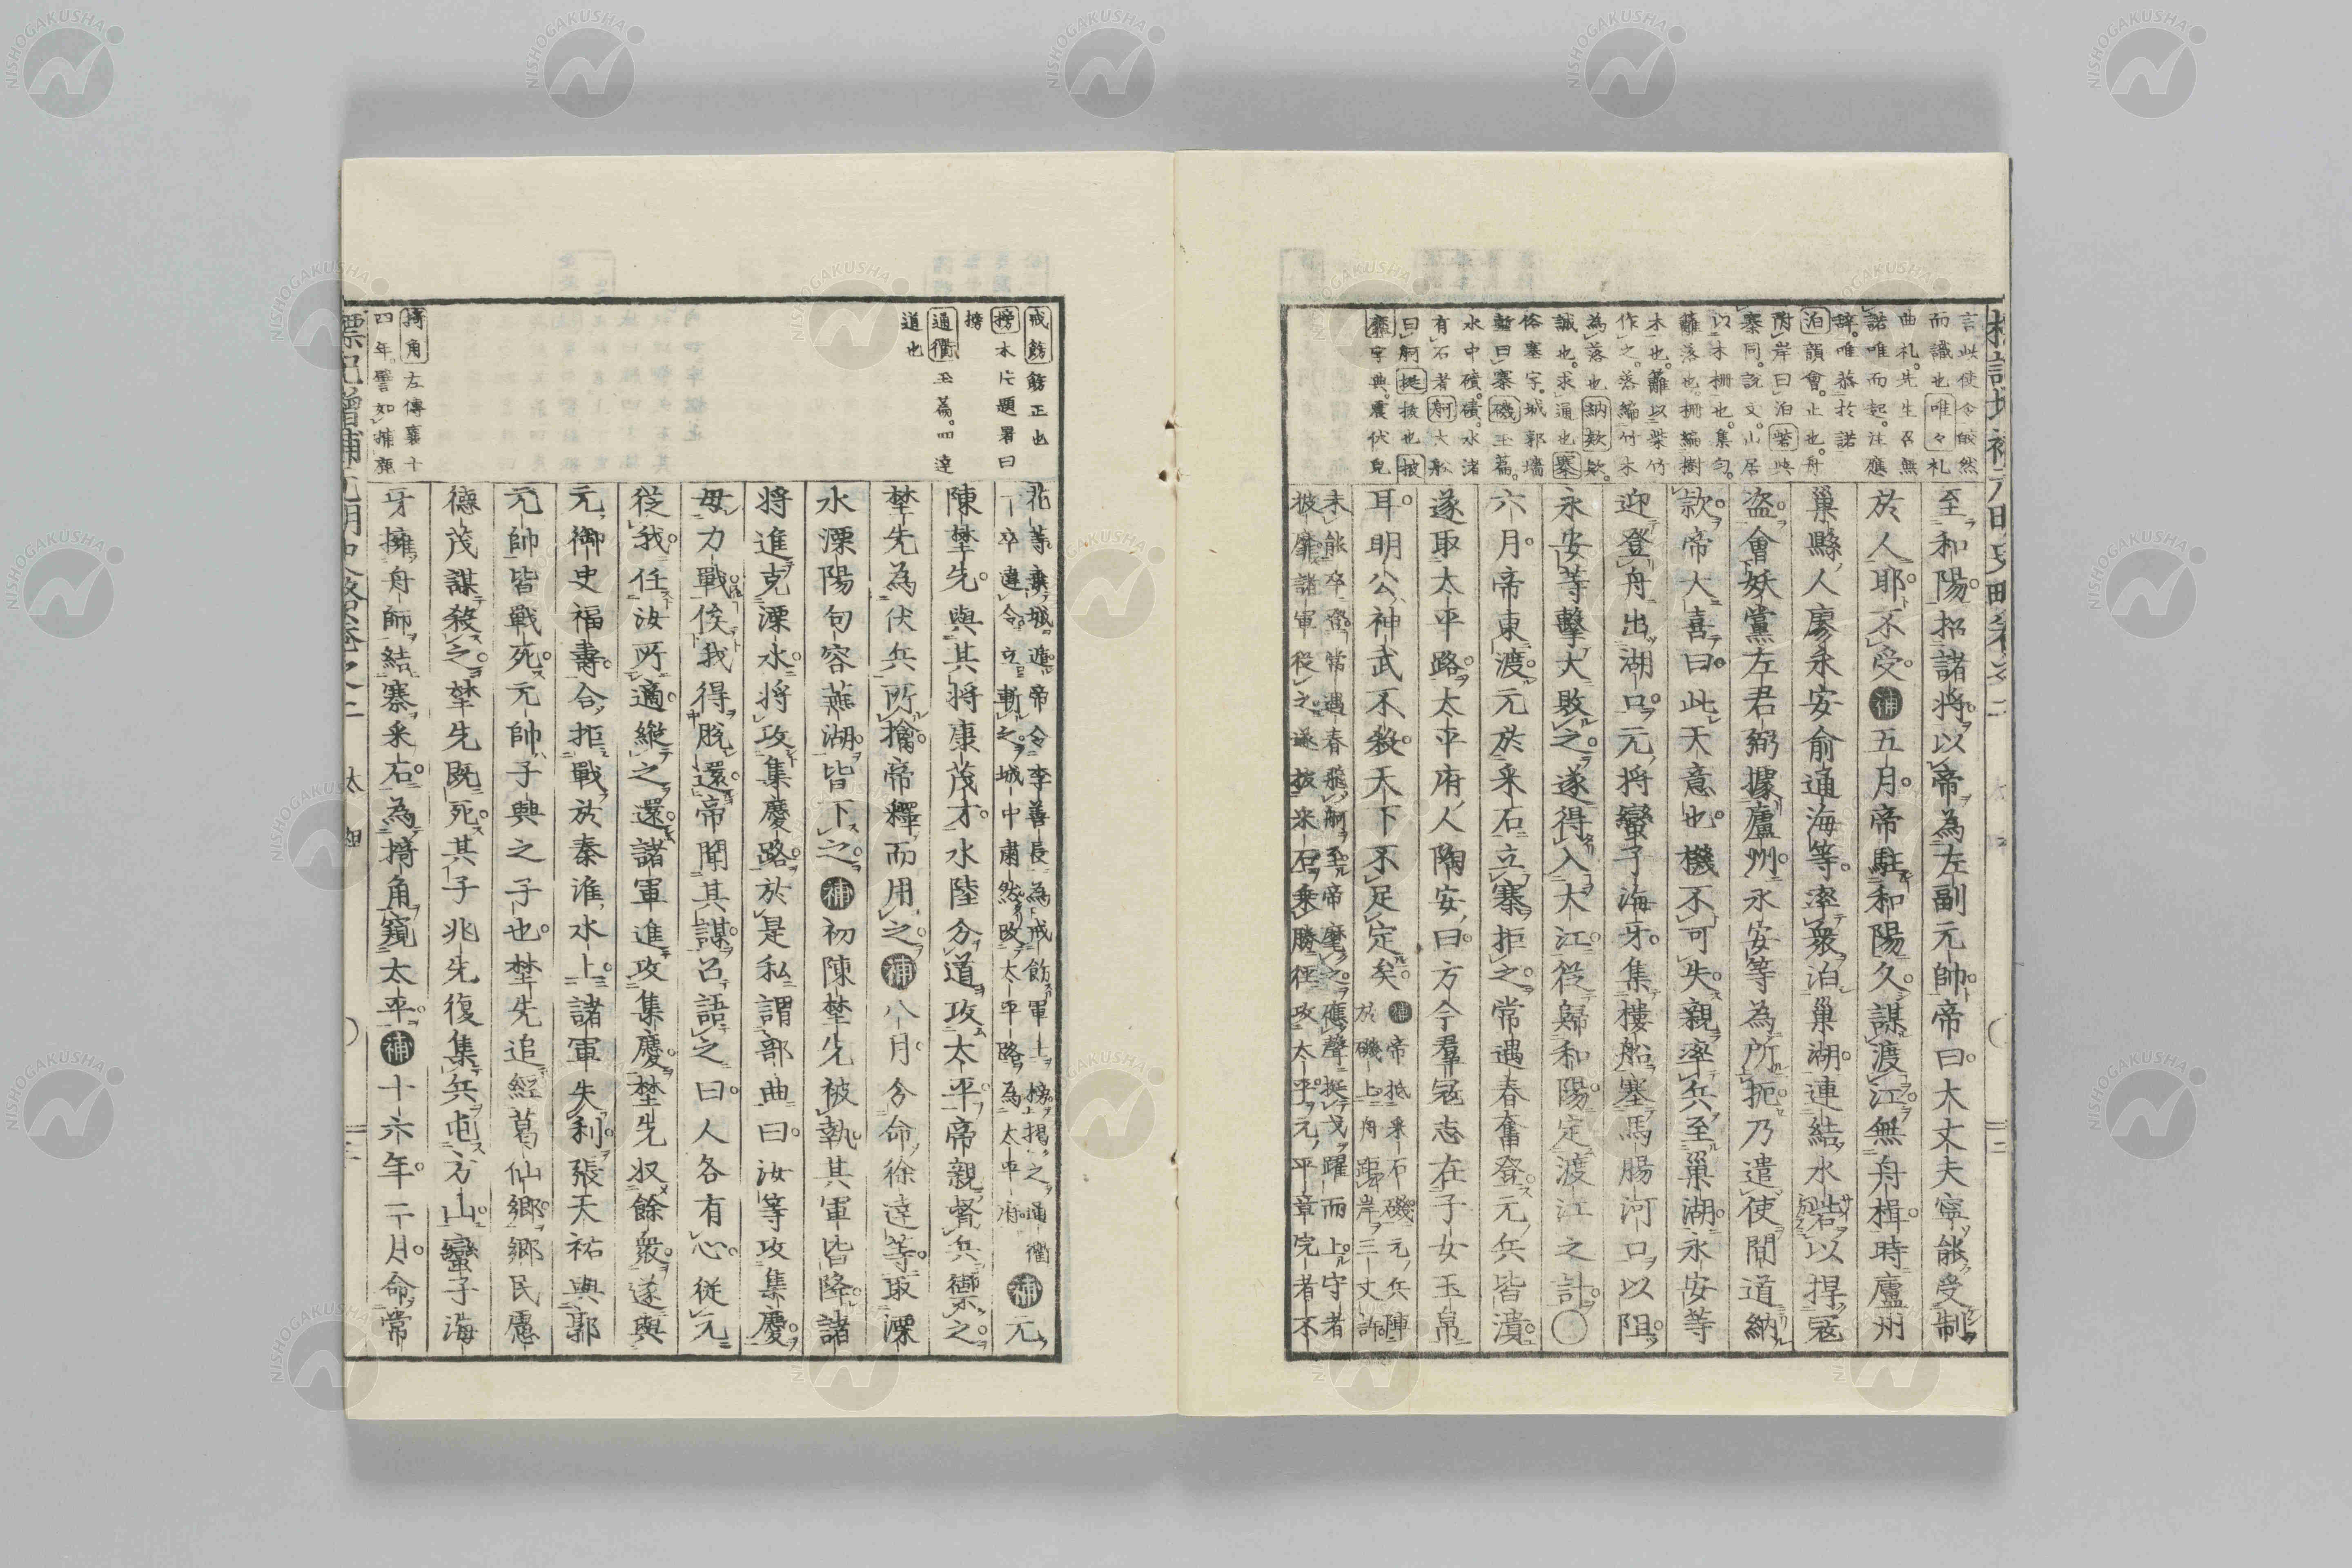 言此使令皦然
而識也唯々礼
曲礼。先生召無
諾唯而起。注應
辞。唯恭於諾
泊韻會。止也。舟
附岸曰泊砦與
寨同。說文。山居
以木柵也。集勻。
籬落也。柵編樹
木也。籬以柴竹
作之。落編竹木
為落也納款款。
誠也。求通也塞
俗塞字。城郭墻
塹曰寨磯玉篇。
水中磧。磧。水渚
有石者舸大船
曰舸挺拔也披
靡字典。震伏皃
至和陽。招諸將。以帝為左副元帥。帝曰。大丈夫寧能受制
於人耶。不受。補五月。帝駐和陽久。謀渡江。無舟楫。時廬州
巢縣人廖永安俞通海等。率衆泊巢湖。連結水砦。以捍寇
盗。會妖黨左君弼據廬州。永安等為所扼。乃遣使間道納
款。帝大喜曰。此天意也。機不可失。親率兵至巢湖。永安等
迎登舟出湖口。元將蠻子海牙。集樓船。塞馬腸河口以阻。
永安等擊大敗之。遂得入大江。從歸和陽。定渡江之計。〇
六月。帝東渡。元於采石立寨拒之。常遇春奮登。元兵皆潰。
遂取太平路。太平府人陶安曰。方今羣寇志在子女玉帛
耳。明公神武不殺。天下不足定矣。補帝抵采石磯。元兵陣
於磯上。舟距岸三丈許。
未能卒登。常遇春飛舸至。帝麾之。應聲挺戈躍而上。守者
披靡。諸軍從之。遂拔采石。乘勝徑攻太平。元平章完者不
戒飭飭正也
榜木片題署曰
榜
通衢玉篇。四達
道也
掎角左傳襄十
四年。譬如捕鹿
花等棄城遁。帝令李善長為戒飭軍士榜。揭之通衢
一卒違令。立斬之。城中肅然。改太平路為太平府。補元
陳埜先。與其將康茂才。水陸分道攻太平。帝親督兵禦之。
埜先為伏兵所擒。帝釋而用之。補八月。分命徐達等。取溧
水溧陽句容蕪湖。皆下之。補初陳埜先被執。其軍皆降。諸
將進克溧水。將攻集慶路。於是私謂部曲曰。汝等攻集慶。
毋力戰。俟我得脫還。帝聞其謀。召語之曰。人各有心。從元
從我。任汝所適。縱之還。諸軍進攻集慶。埜先收餘衆。遂與
元御史福壽合。拒戰於秦淮水上。諸軍失利。張天祐與郭
元帥皆戰死。元帥子興之子也。埜先追經葛仙鄉。鄉民慮
德茂謀殺之。埜先既死。其子兆先復集兵。屯方山。蠻子海
牙擁舟師結寨采石。為掎角窺太平。補十六年。二月。命常